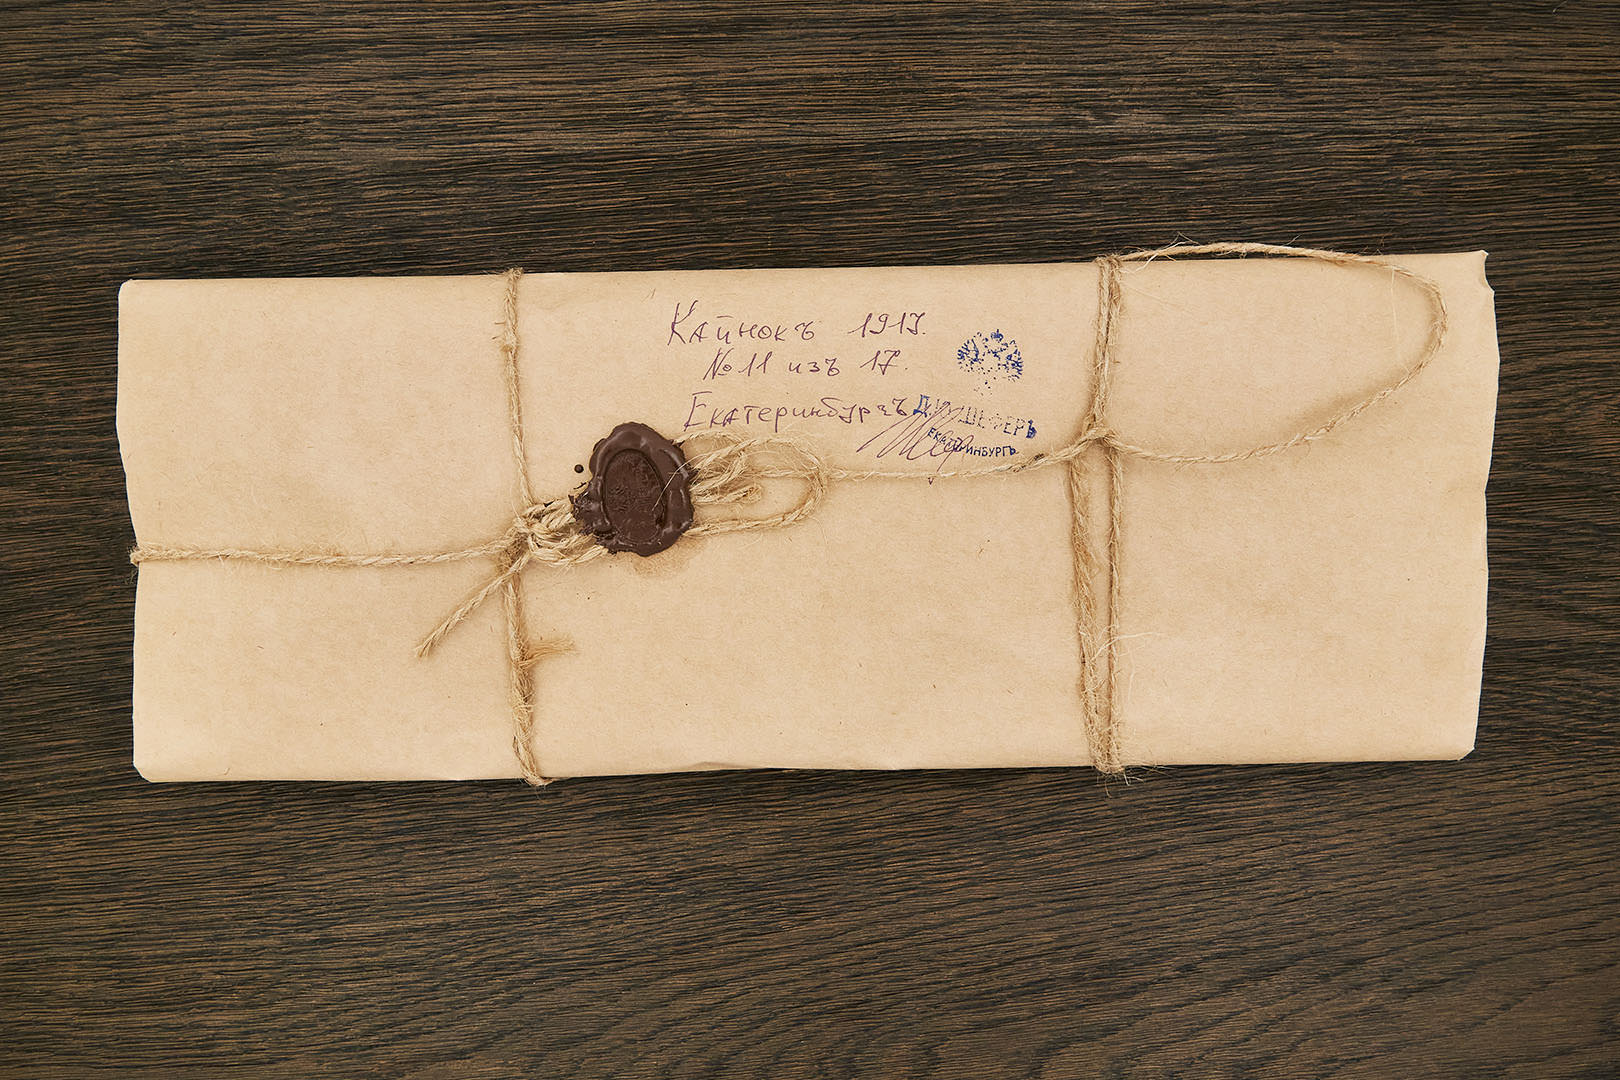 Кайнокъ 1917.
№11 изъ 17.
Екатеринбургъ
ШЕФЕРЪ
ЕКАТЕРИНБУРГЪ